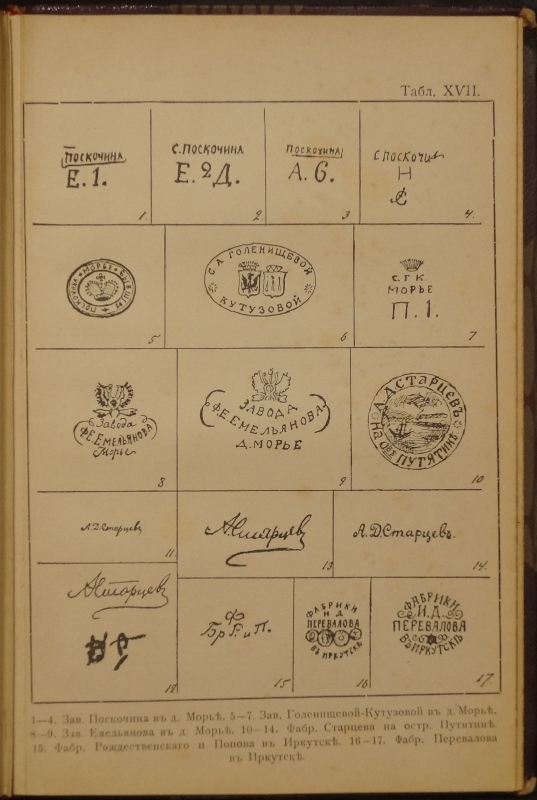 Табл. XVII.
ПОСКОЧИНА
Е. 1.
1.
С. ПОСКОЧИНА
Е. 2Д.
2
ПОСКОЧИНА
А. 6.
3
С ПОСКОЧИ
Н
4.
МОРЬЕ
5
С. А. ГОЛЕНИЩЕВОЙ
КУТУЗОВОЙ
6
С. Г К
МОРЬЕ
П. 1.
7
Завода
Ф. Е. ЕМЕЛЬЯНОВА
Морье
8
ЗАВОДА
Ф. Е. ЕМЕЛЬЯНОВА
Д. МОРЬЕ
9
А. Д. СТАРЦЕВЪ
на о-вѣ ПУТЯТИНѢ
10
А. Д. Старцевъ
11
АСтарцев
13
А. Д. Старцевъ.
14.
АСтарцев
Ф
Бр Р. и П.
15
ФАБРИКИ
И Д
ПЕРЕВАЛОВА
ВЪ ИРКУТСКѢ
16
ФАБРИКИ
И. Д.
ПЕРЕВАЛОВА
ВЪ ИРКУТСКѢ
17.
1—4. Зав. Поскочина въ д. Морьѣ. 5—7. Зав. Голенищевой-Кутузовой въ д. Морьѣ.
8—9. Зав. Емельянова въ д. Морьѣ. 10—14. Фабр. Старцева на остр. Путятинѣ.
15. Фабр. Рождественскаго и Попова въ Иркутскѣ. 16—17. Фабр. Перевалова
въ Иркутскѣ.